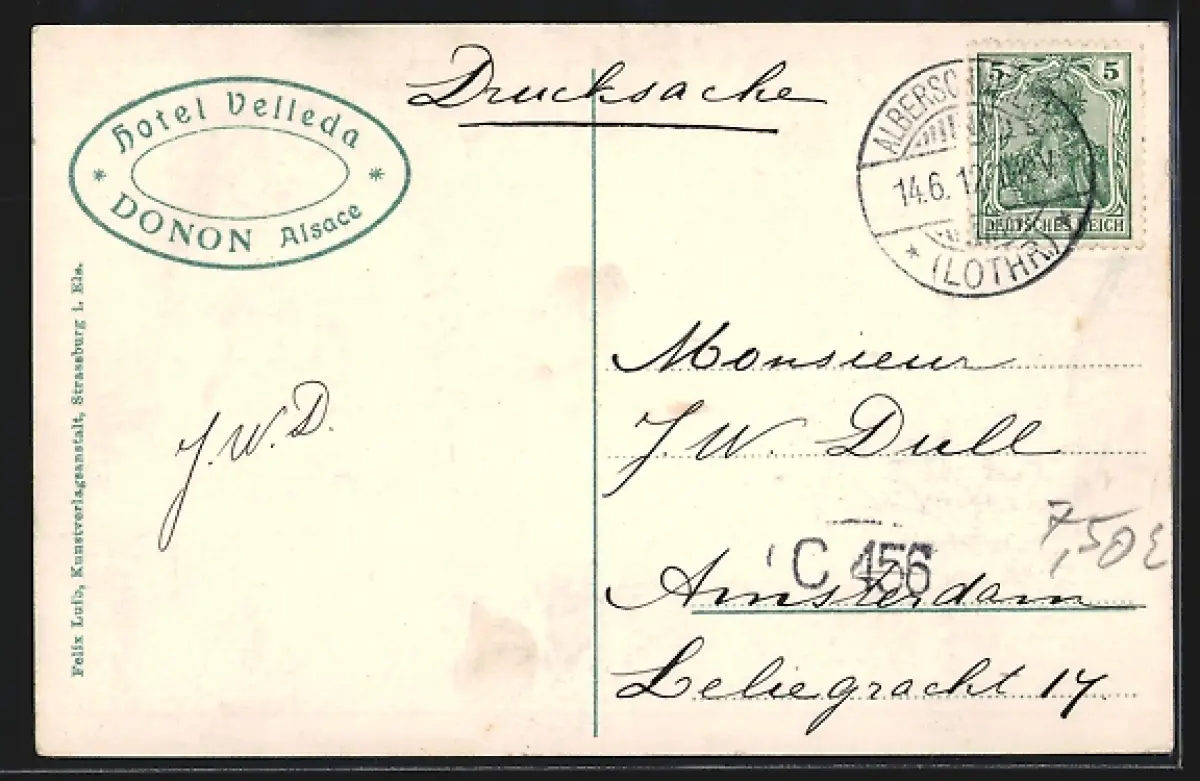 Hotel Velleda
* *
DONON Alsace
Drucksache
5 5
DEUTSCHES REICH
14.6.12
* (LOTHR.) *
Felix Luib, Kunstverlagsanstalt, Strassburg i. Els.
J. W. D.
Monsieur
J. W. Dull
C 456
7,50 €
Amsterdam
Leliegracht 17.